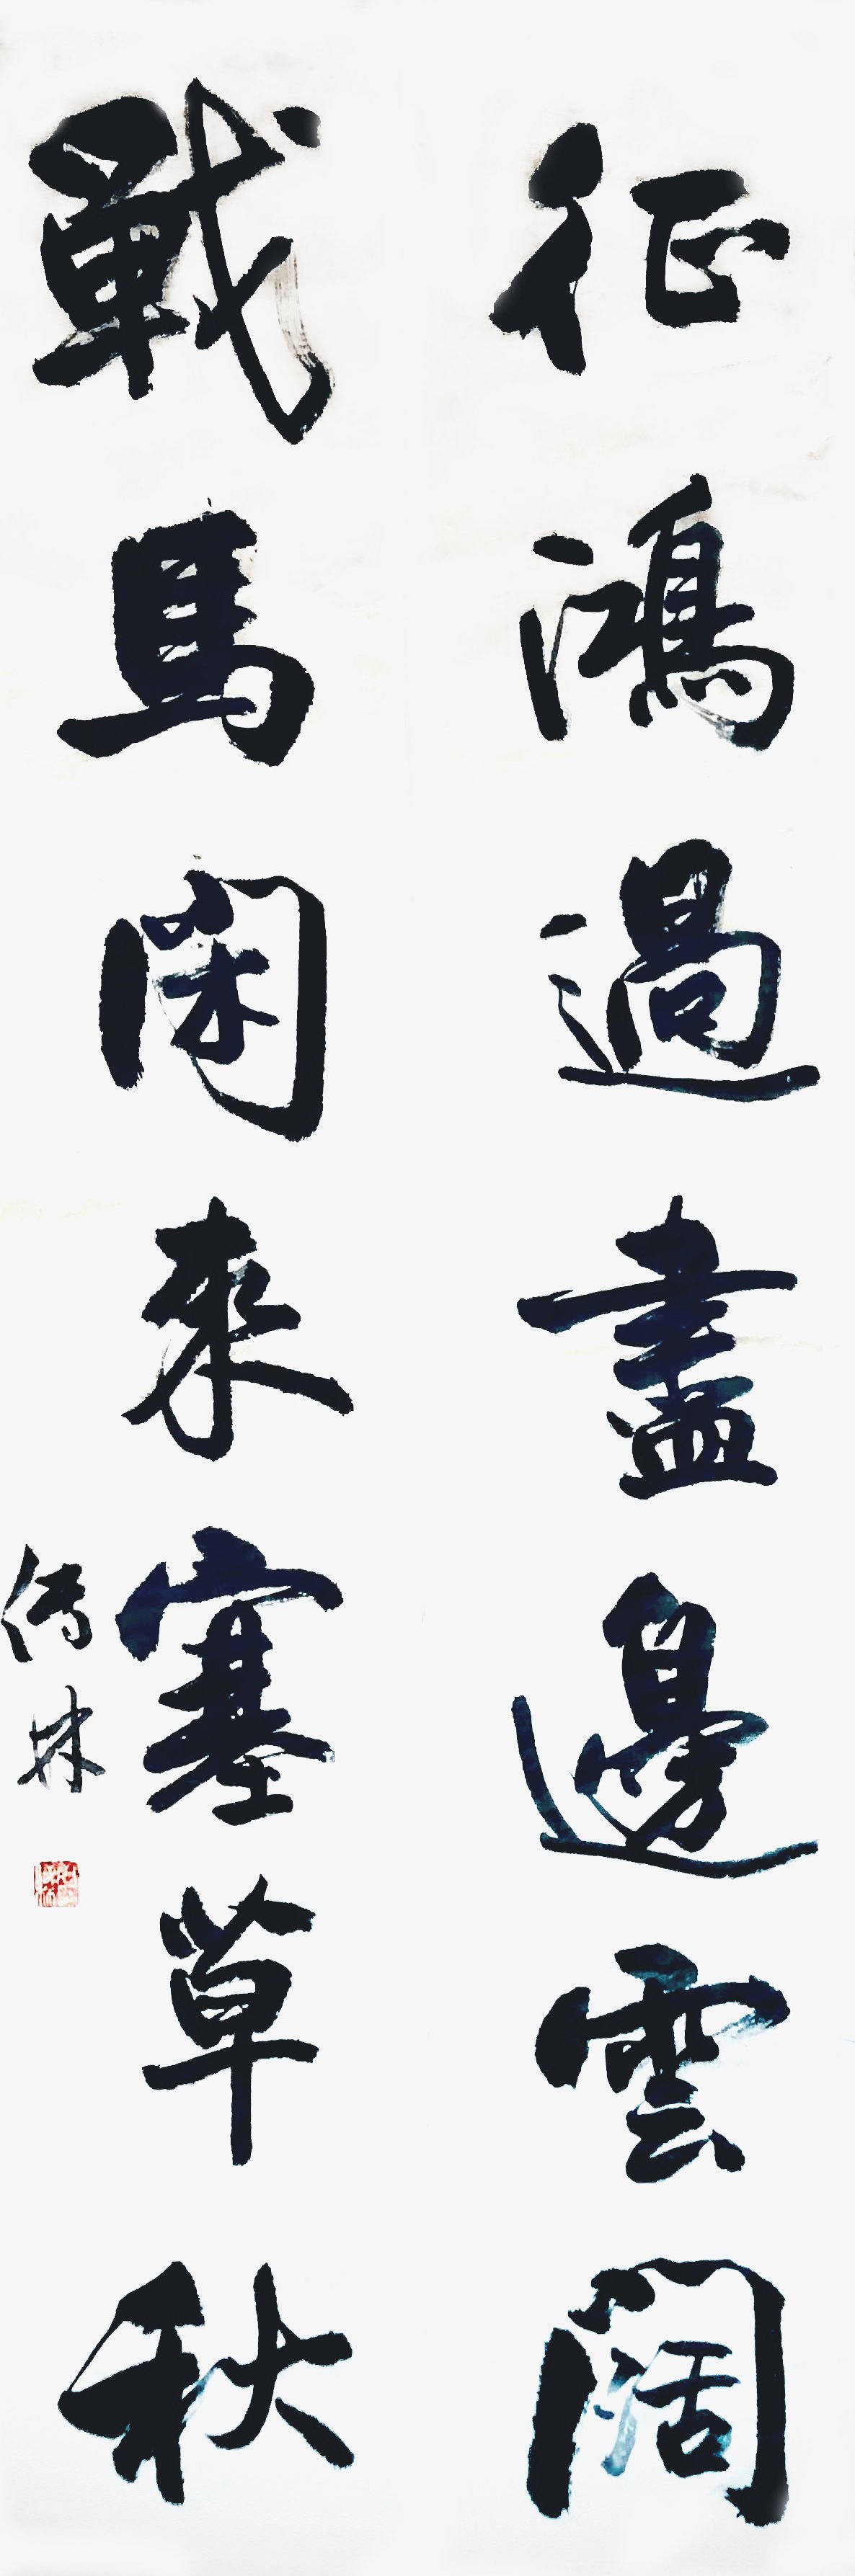 征鴻過盡邊雲闊
戰馬閑來塞草秋
传林